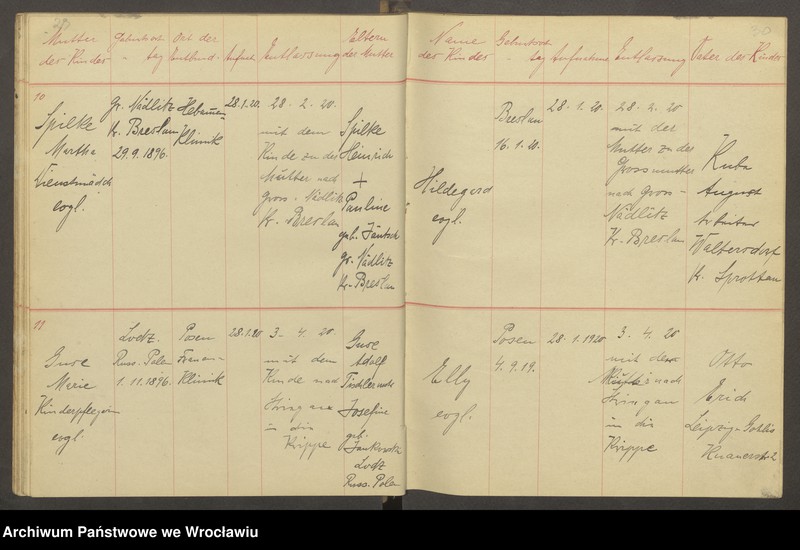 Mutter
der Kinder
Geburtsort
- tag
Ort der
Entbind.
Aufnah.
Entlassung
Eltern
der Mutter
10
Spilke
Martha
Dienstmädch
evgl.
Gr. Nädlitz
Kr. Breslau
29.9.1896.
Hebammen
Klinik
28.1.20.
28. 2. 20.
mit dem
Kinde zu der
Mutter nach
Gross-Nädlitz
Kr. Breslau
Spilke
Heinrich
+
Pauline
geb. Jäutsch
Gr. Nädlitz
Kr. Breslau
11
Guse
Marie
Kinderpflegerin
evgl.
Lodz.
Russ. Polen
1. 11. 1896.
Posen
Frauen-
Klinik
28.1.20
3. 4. 20.
mit dem
Kinde nach
in die
Krippe
Guse
Adolf
Josefine
geb.
Lodz
Russ. Polen
30
Name
der Kinder
Geburtsort
- tag
Aufnahme
Entlassung
Vater der Kinder
Hildegard
evgl.
Breslau
16.1.20.
28. 1. 20.
28. 2. 20
mit der
Mutter zu der
Grossmutter
nach Gross-
Nädlitz
Kr. Breslau
Kuba
August
Arbeiter
Waltersdorf
Kr. Sprottau
Elly
evgl.
Posen
4.9.19.
28. 1. 1920
3. 4. 20
mit der
Mutter nach
in die
Krippe
Otto
Erich
Leipzig-Gohlis
Archiwum Państwowe we Wrocławiu